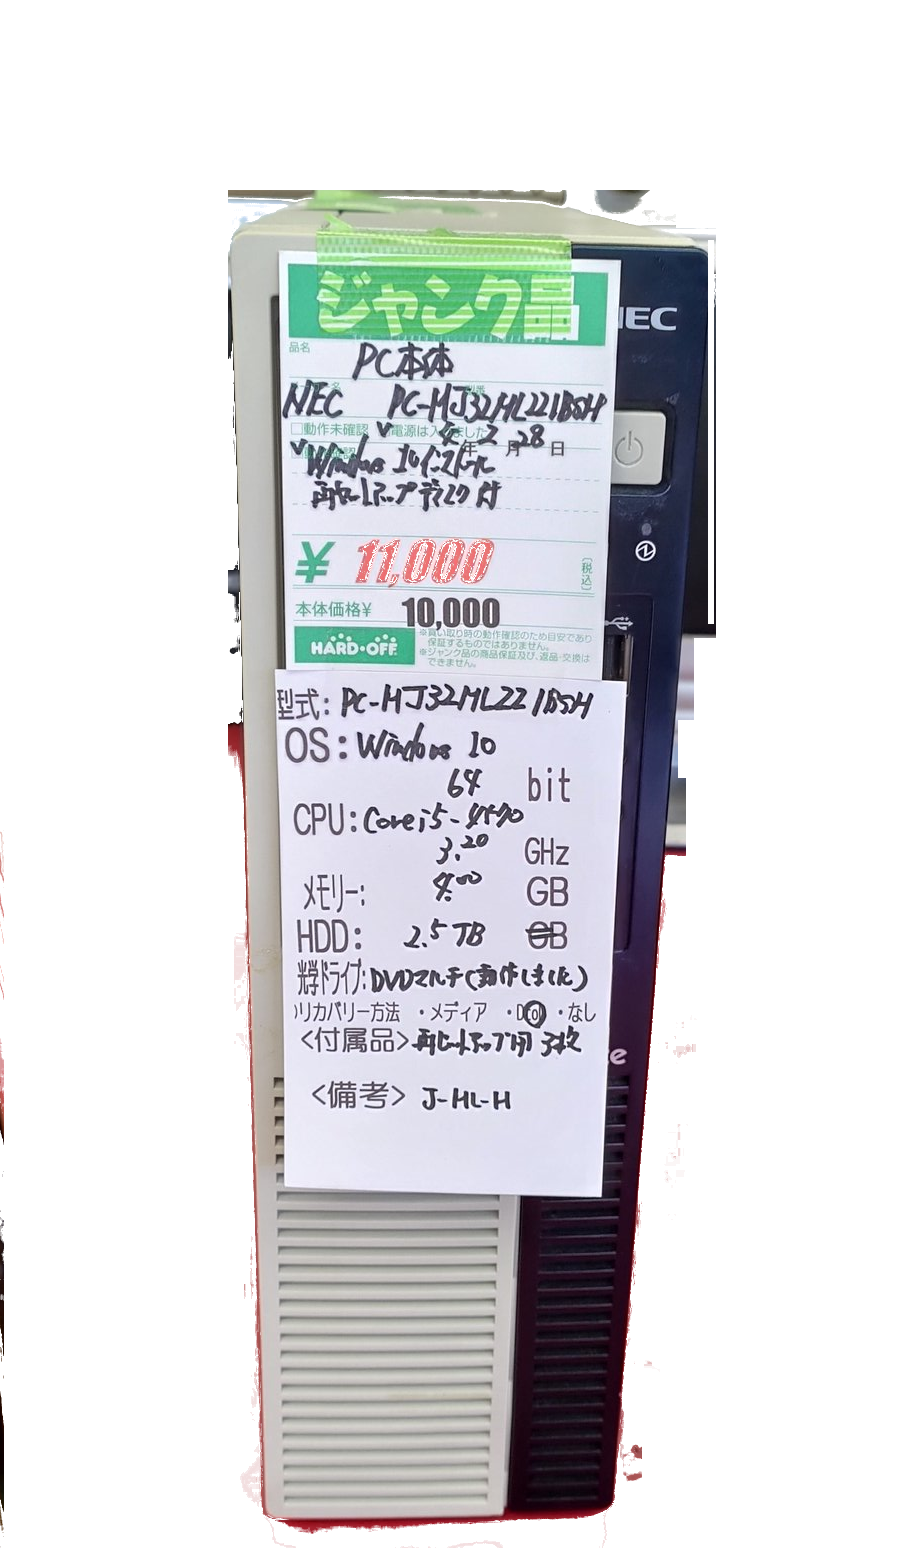 ジャンク品
NEC
品名
PC本体
NEC PC-MJ32MLZZ1BSH
□動作未確認 電源は入りました
4年2月28日
Windows 10インストール
再セットアップディスク付
¥ 11,000 (税込)
本体価格¥ 10,000
HARD・OFF
※買い取り時の動作確認のため目安であり
保証するものではありません。
※ジャンク品の商品保証及び、返品・交換は
できません。
型式: PC-MJ32MLZZ1BSH
OS: Windows 10
64 bit
CPU: Core i5-4570
3.20 GHz
メモリー: 4.00 GB
HDD: 2.5TB GB
光学ドライブ: DVDマルチ(動作しました)
リカバリー方法 ・メディア ・DtoD ・なし
<付属品> 再セットアップ用3枚
<備考> J-ML-H